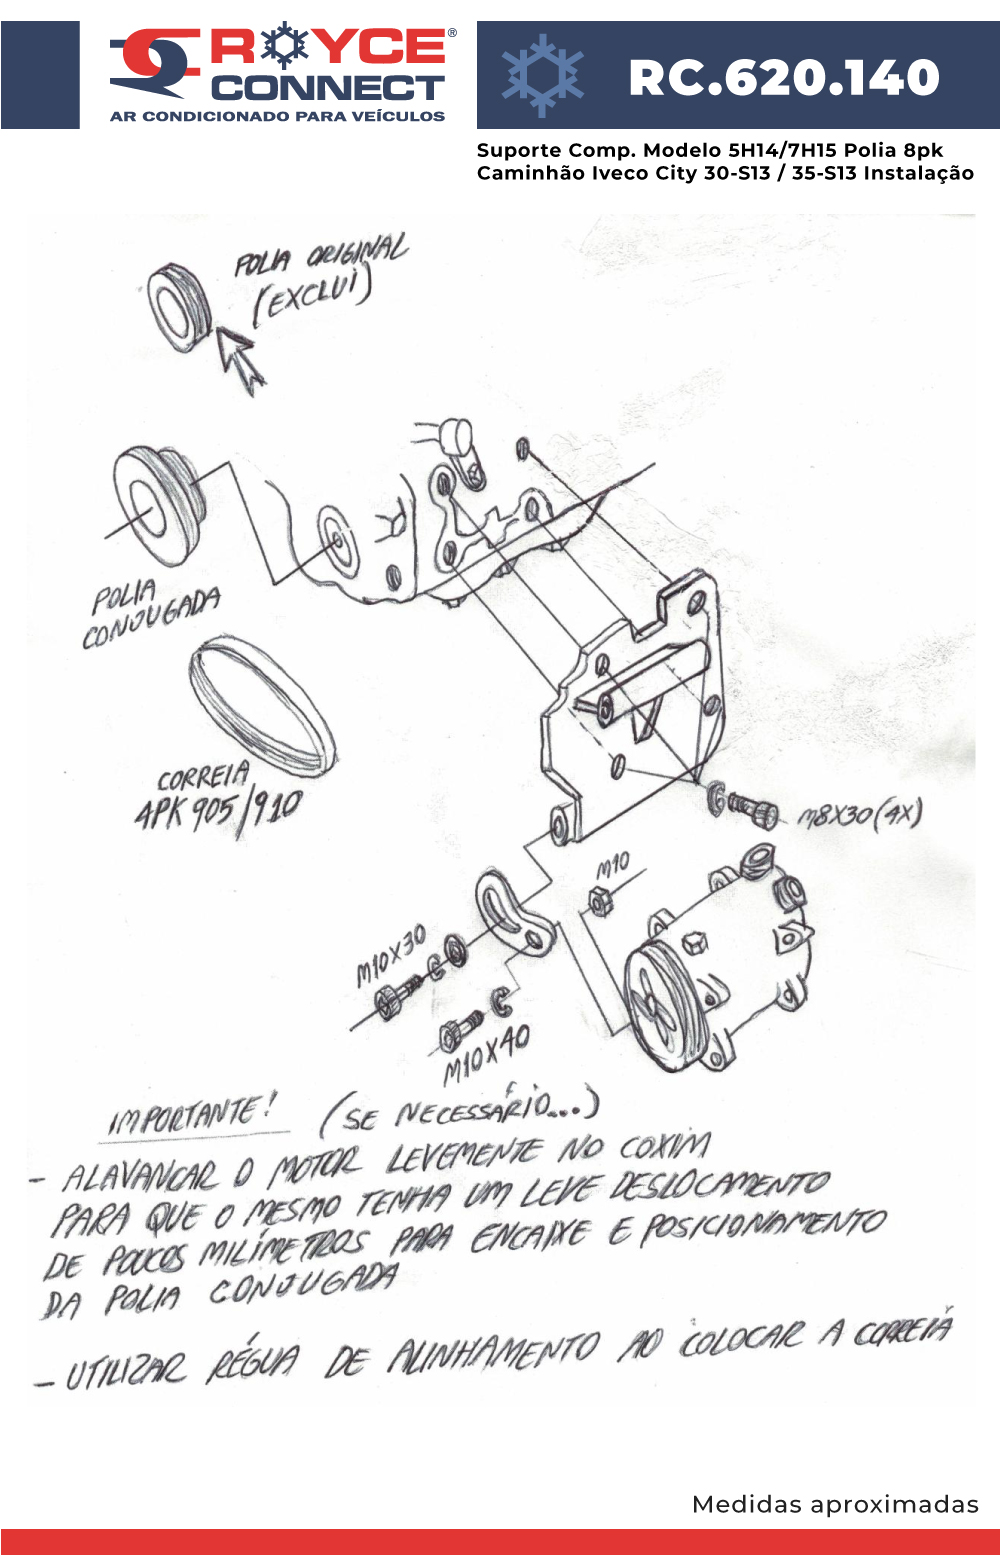 ROYCE®
CONNECT
AR CONDICIONADO PARA VEÍCULOS
RC.620.140
Suporte Comp. Modelo 5H14/7H15 Polia 8pk
Caminhão Iveco City 30-S13 / 35-S13 Instalação
POLIA ORIGINAL
(EXCLUI)
POLIA
CONJUGADA
CORREIA
4PK 905/910
M8X30(4X)
M10
M10X30
M10X40
IMPORTANTE! (SE NECESSÁRIO...)
- ALAVANCAR O MOTOR LEVEMENTE NO COXIM
PARA QUE O MESMO TENHA UM LEVE DESLOCAMENTO
DE POUCOS MILÍMETROS PARA ENCAIXE E POSICIONAMENTO
DA POLIA CONJUGADA
- UTILIZAR RÉGUA DE ALINHAMENTO AO COLOCAR A CORREIA
Medidas aproximadas